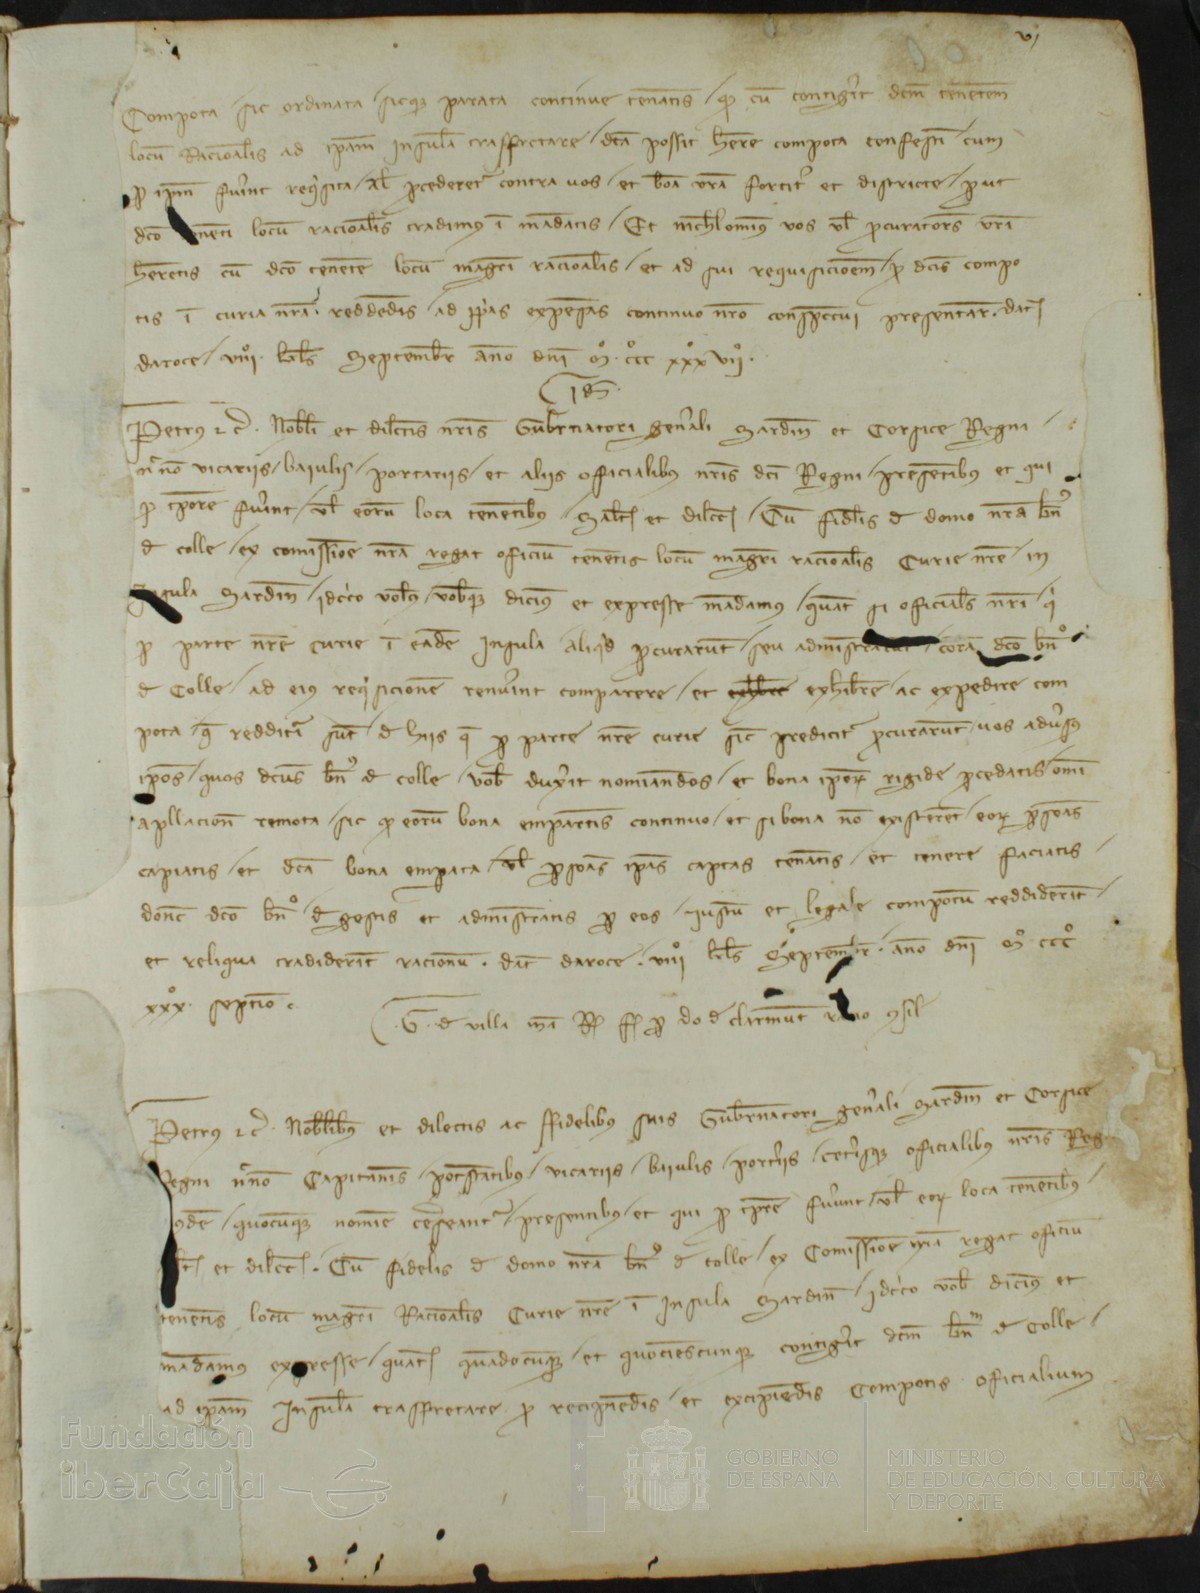 vj
Compota / sic ordinata / sicq3 parata continue tenatis / q cu contigit dcm tenetem
locu Racioalis ad ipam Insula trasffretare / dca possit here compota confestim cum
p ipm fuint reqisita / al pcederet contra uos / et boa vra fortit et districte / put
dco tenenti locu racioalis tradimus i madatis / Et nichlomin9 uos vl pcuratores vri
heretis cu dco tenete locu magri racioalis / et ad sui requisicioem / p dcis compo
tis i curia nra reddedis / ad ppas expesas continuo nro conspectui presentar. dat
daroce / viiiº kls Septembr ano dni mº cccº xxxº viiº.
Ids
Petrus 2 c. Nobili et dilectis nris Gubrnatori genali Sardin et Corsice Regni /
nrno vicariis / baiulis / portariis / et aliis officialibus nris dci Regni / presetibus et qui
p tpore fuint / vl eoru loca tenetibus / Salt et dilect / Cu fidlis d domo nra bn
d colle / ex comissioe nra regat oficiu tenetis locu magri racioalis Curie nre / in
Insula Sardin / idcco vobis / vobisq3 dicim9 et expresse madamus / quat si oficials nri / q
p parte nre curie i eade Insula aliqd pcurarut / seu administrarut / cora dco bnº
d Colle / ad ei9 reqisicione renuint comparere / et exhibere exhibere / ac expedire com
pota / q redditi sut / d hiis q p parte nre curie sic predicit pcurarut / uos adusus
ipos / quos dcus bn d colle / vob duxit nomiandos / et bona ipor rigide pcedatis / omi
apllacion remota / sic q eoru bona emparetis continuo / et si bona no existeret / eor psoas
capiatis / et dca bona empata / vl psoas ipas captas tenatis / et tenere faciatis /
donec dco bnº d gestis et administratis p eos / iustu et legale compotu reddiderit /
et reliqua tradiderit racionu. dat daroce. viiiº kls Septembr. ano dni mº cccº
xxxº septio.
G. d villa ma R ff p do d clarmut raco 9sil
Petrus 2 c. Nobilibus et dilectis ac ffidelibus suis Gubrnatori genali Sardin et Corsice
Regni nrno Capitaneis / potestatibus / vicariis / baiulis / portiis / cetisq3 oficialibus nris Reg
eiusde / quocuq3 nomie ceseant / presentibus / et qui p tpre fuint / vl eor loca tenetibus /
salt et dilect. Cu fidelis d domo nra bn d colle / ex Comissioe nra regat oficiu
tenetis locu magri Racioalis Curie nre i Insula Sardin / idcco vob dicim9 et
madamus expresse / quat quadocuq3 et quociescunq3 contigit dcm bnm d Colle /
ad ipam Insula trasffretare p recipiedis / et excipiedis Compotis oficialium
Fundación
iberCaja
GOBIERNO
DE ESPAÑA
MINISTERIO
DE EDUCACIÓN, CULTURA
Y DEPORTE